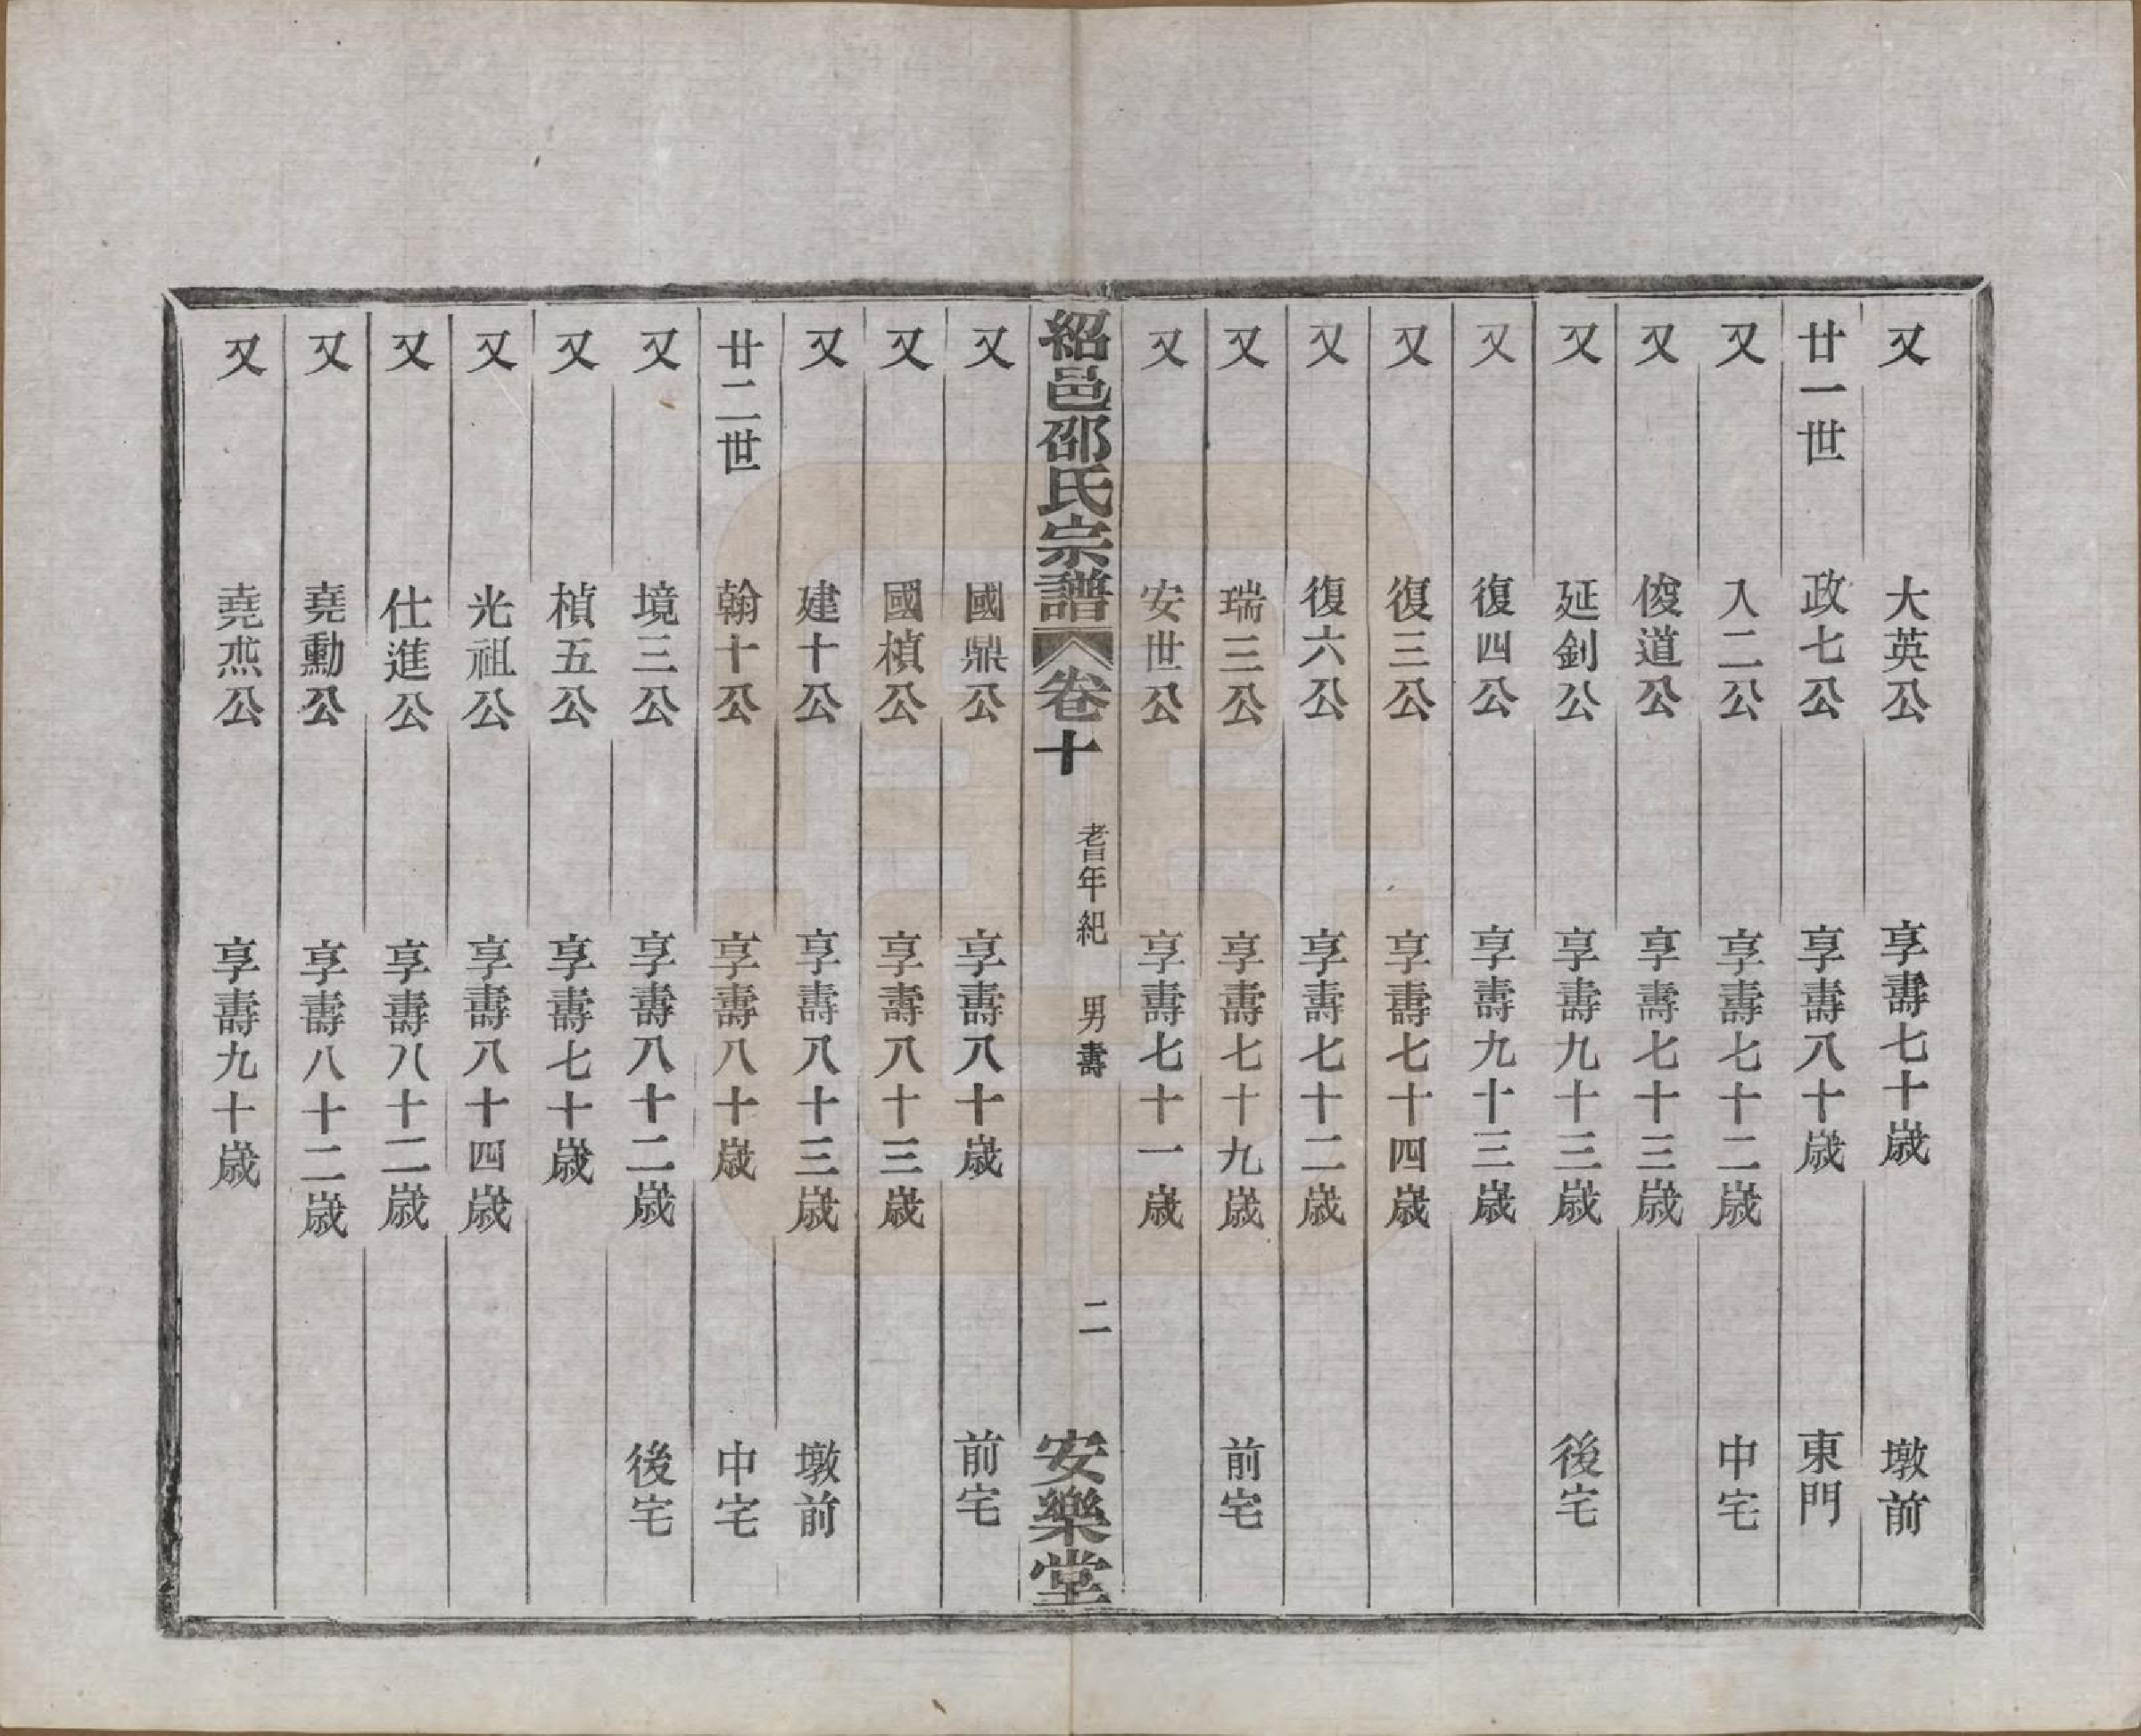 又 大英公 享壽七十歲 墩前
廿一世 政七公 享壽八十歲 東門
又 入二公 享壽七十二歲 中宅
又 俊道公 享壽七十三歲
又 延釗公 享壽九十三歲 後宅
又 復四公 享壽九十三歲
又 復三公 享壽七十四歲
又 復六公 享壽七十二歲
又 瑞三公 享壽七十九歲 前宅
又 安世公 享壽七十一歲
紹邑邵氏宗譜 卷十 耆年紀 男壽 二 安樂堂
又 國鼎公 享壽八十歲 前宅
又 國楨公 享壽八十三歲
又 建十公 享壽八十三歲 墩前
廿二世 翰十公 享壽八十歲 中宅
又 境三公 享壽八十二歲 後宅
又 楨五公 享壽七十歲
又 光祖公 享壽八十四歲
又 仕進公 享壽八十二歲
又 堯勳公 享壽八十二歲
又 堯烝公 享壽九十歲